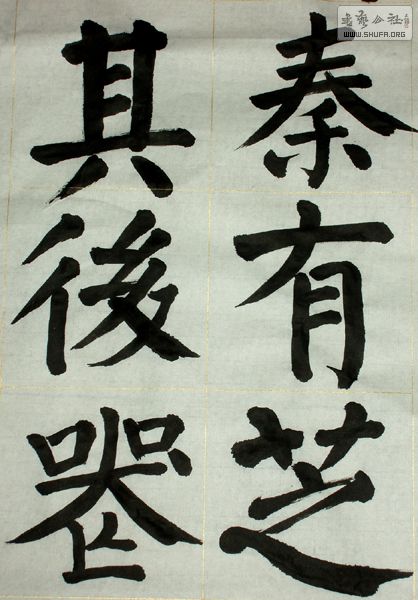 秦有芝
其後喪
書藝公社
WWW.SHUFA.ORG